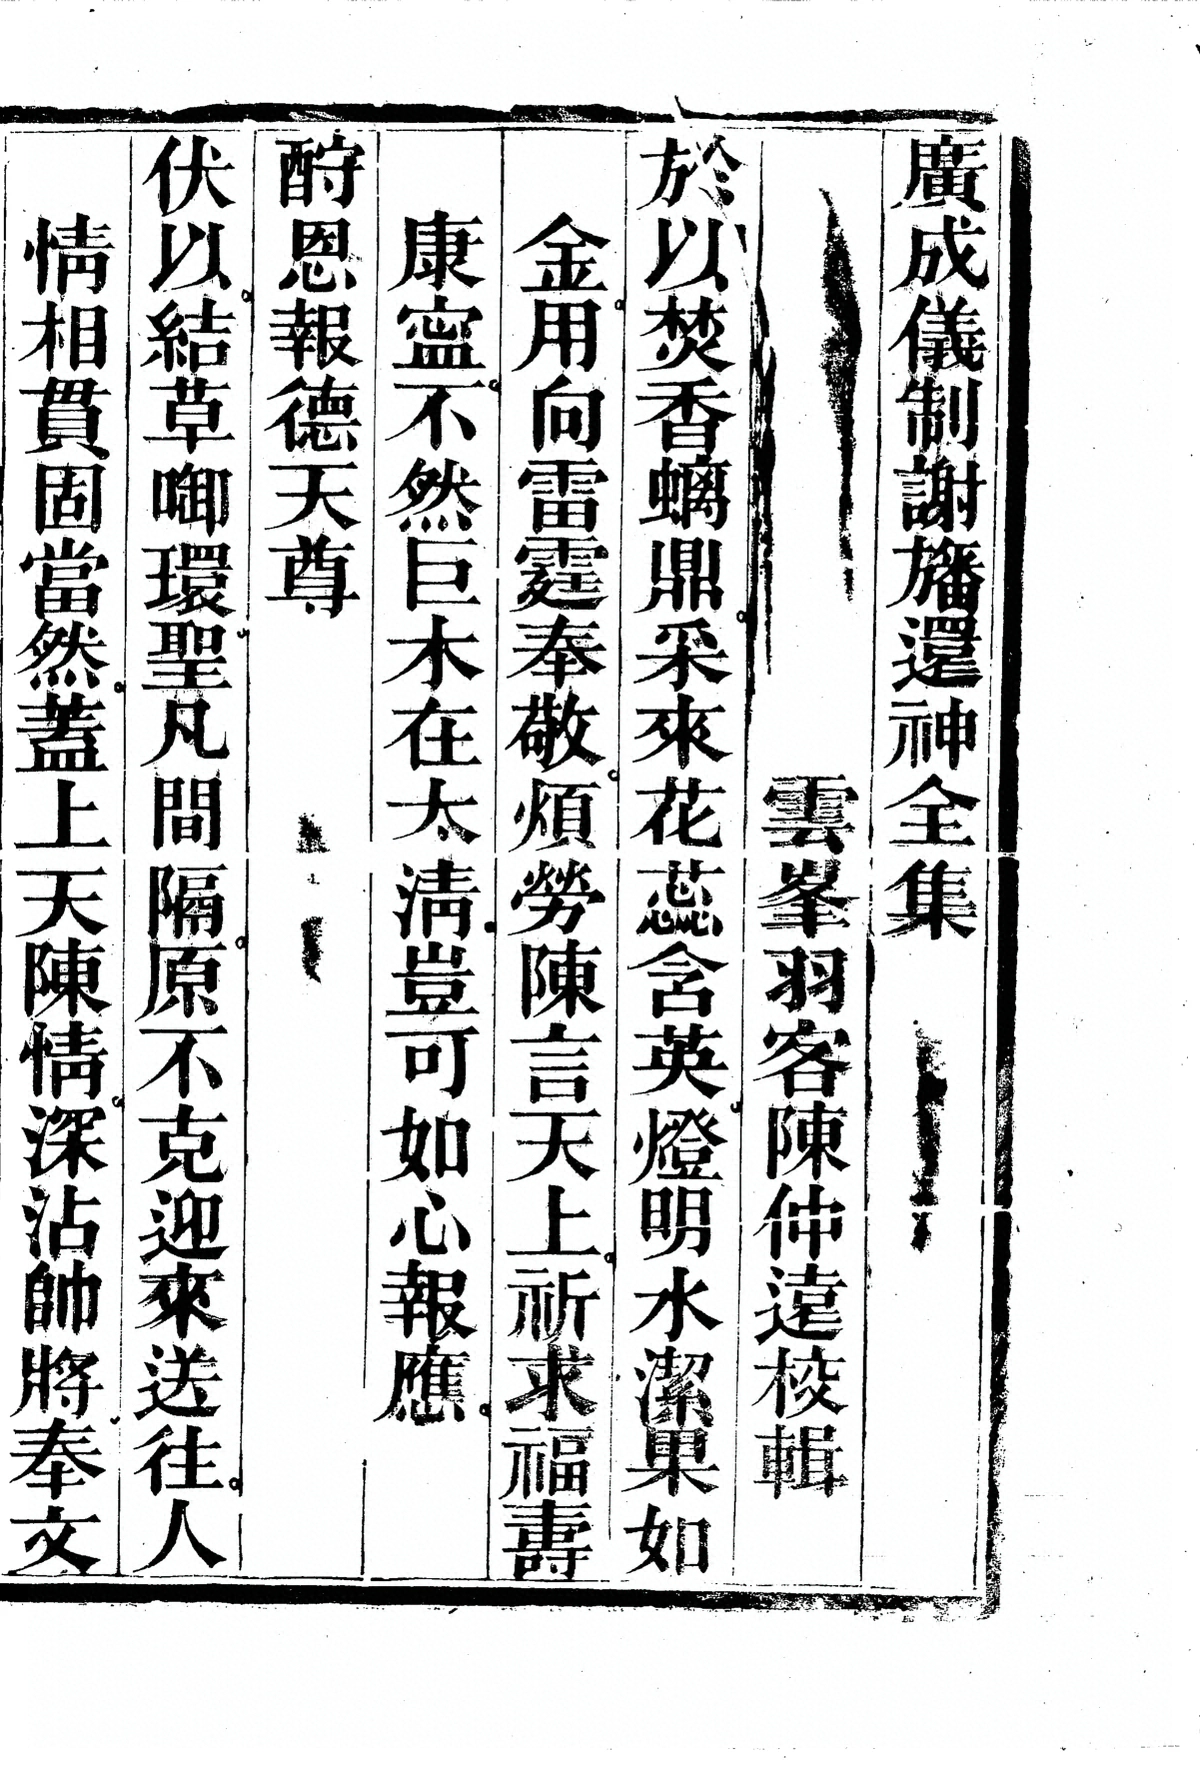 廣成儀制謝旛還神全集
雲峯羽客陳仲遠校輯
於以焚香螭鼎采來花蕊含英燈明水潔果如
金用向雷霆奉敬煩勞陳言天上祈求福壽
康寍不然巨木在太清豈可如心報應
酧恩報德天尊
伏以結草啣環聖凡間隔原不克迎來送往人
情相貫固當然蓋上天陳情深沾帥將奉文